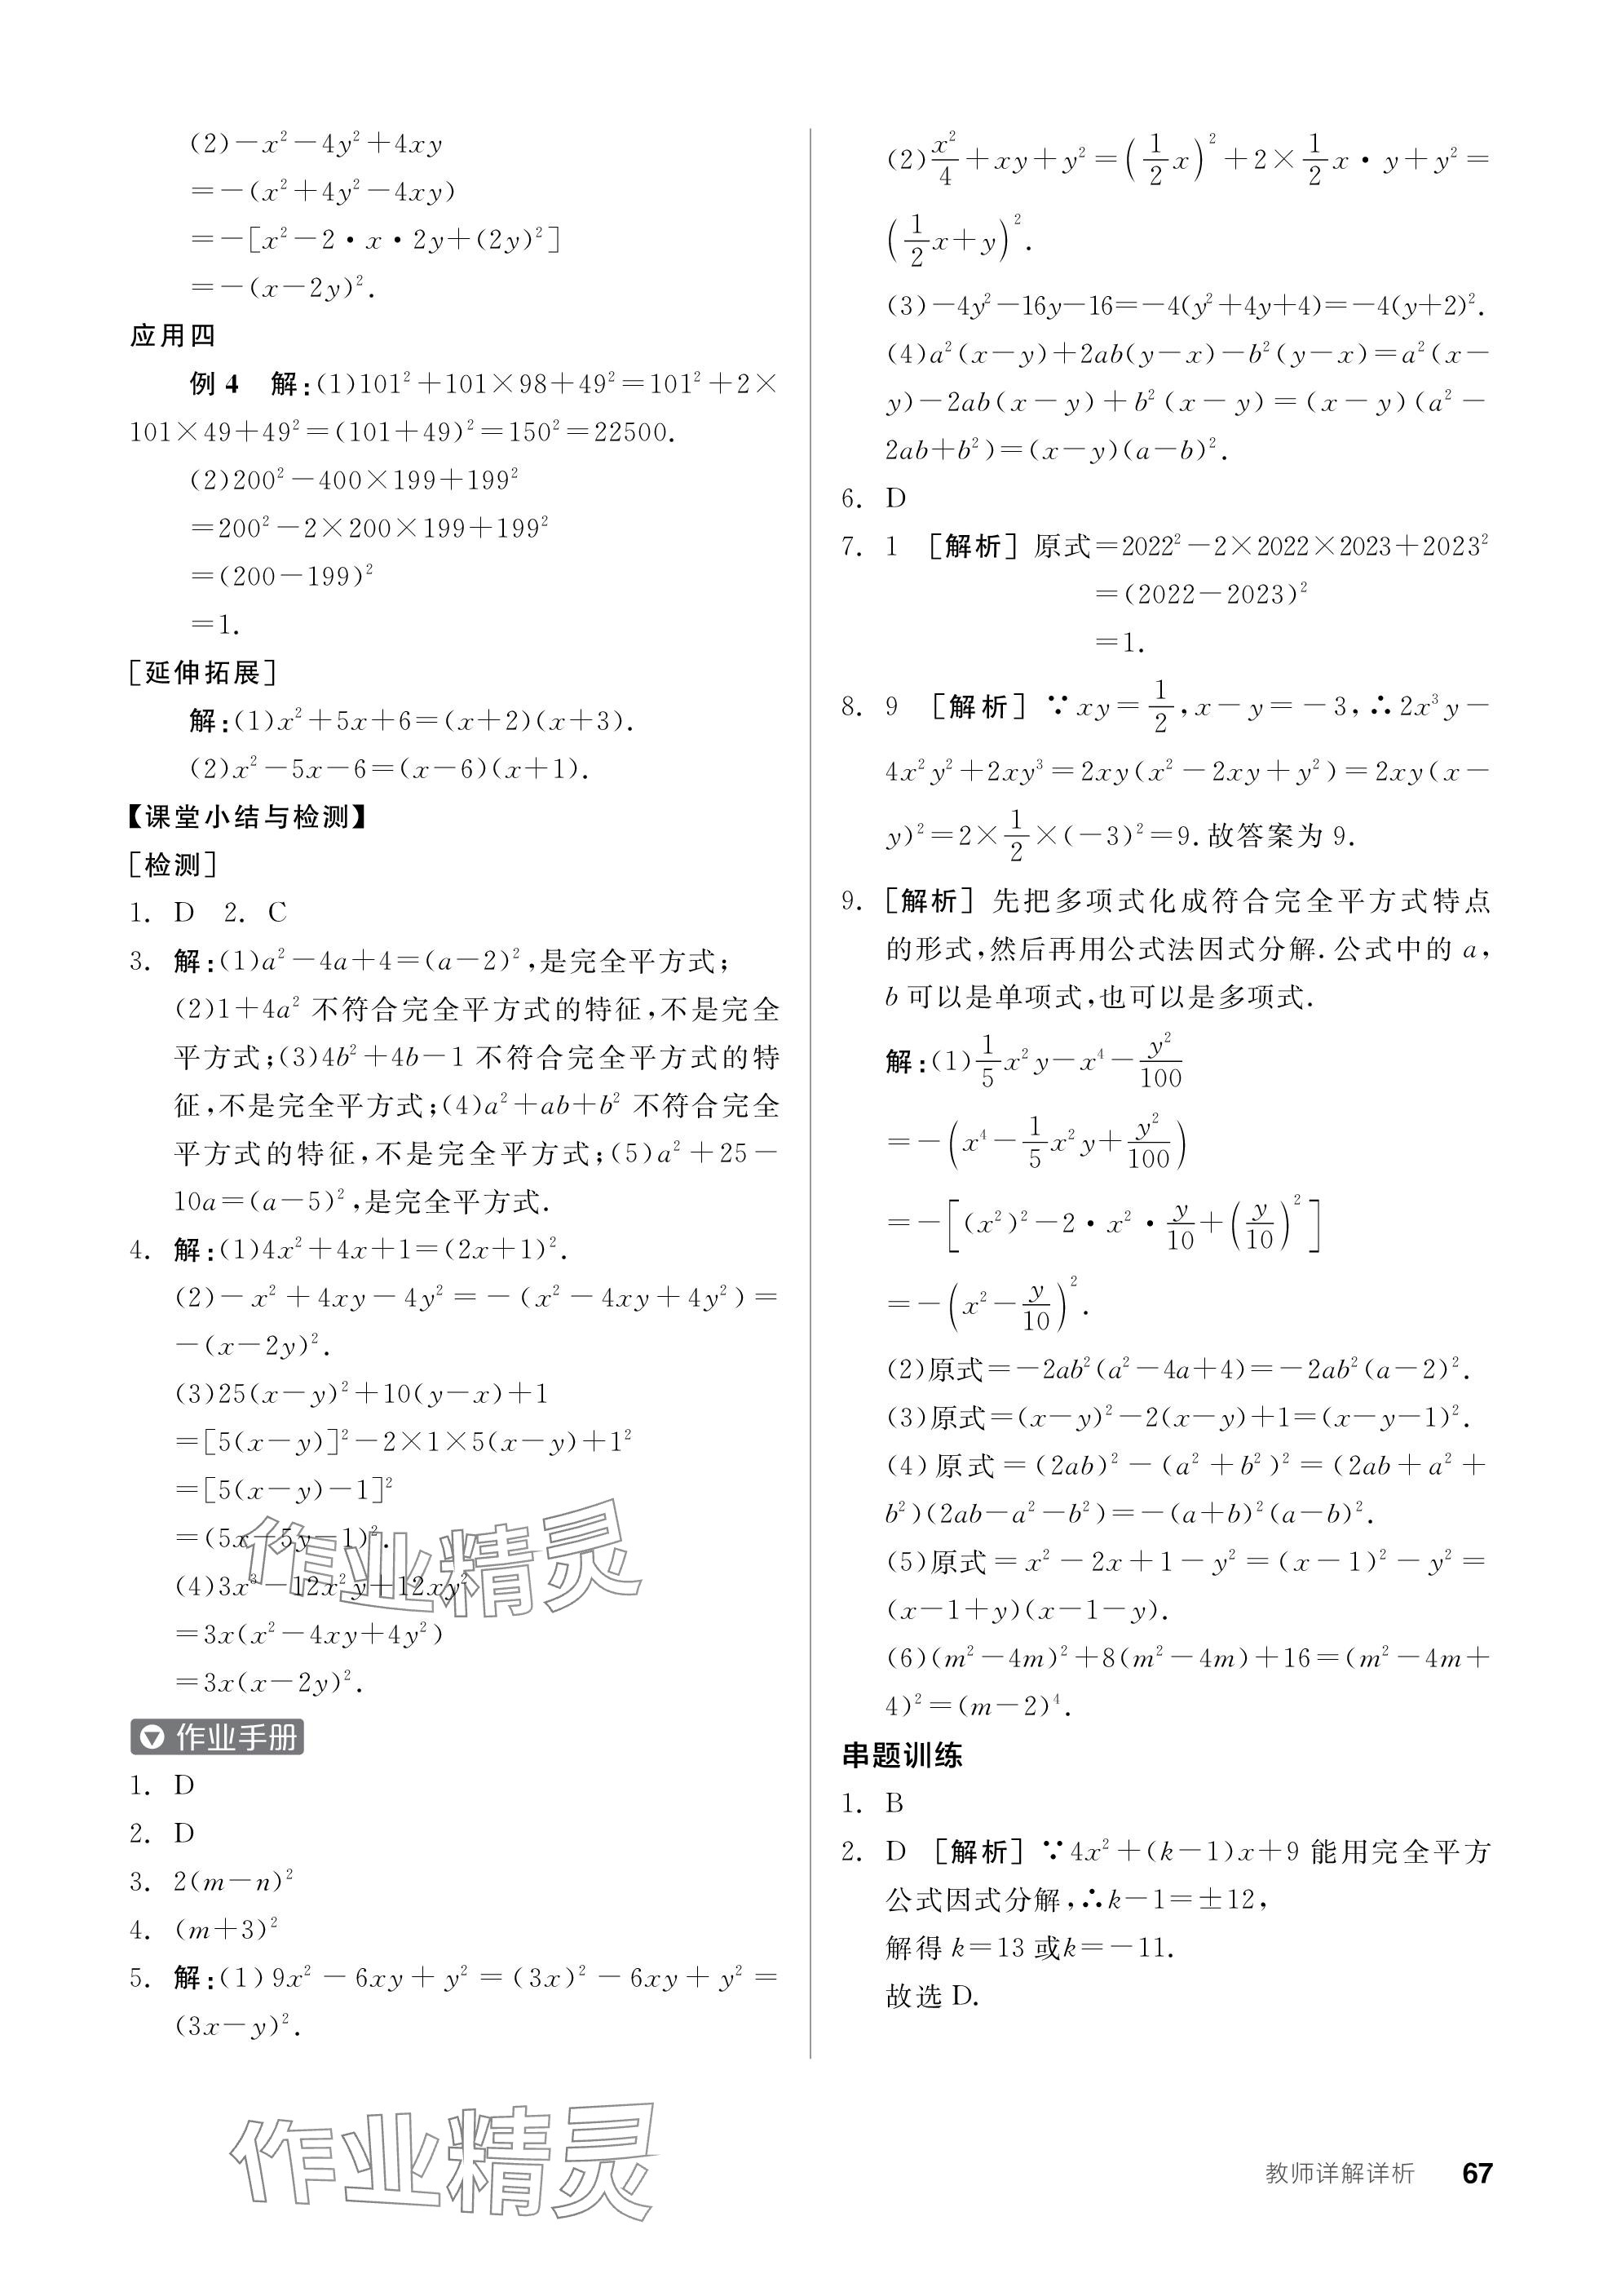 (2)－x²－4y²＋4xy
＝－(x²＋4y²－4xy)
＝－[x²－2·x·2y＋(2y)²]
＝－(x－2y)².
应用四
例4 解:(1)101²＋101×98＋49²＝101²＋2×
101×49＋49²＝(101＋49)²＝150²＝22500.
(2)200²－400×199＋199²
＝200²－2×200×199＋199²
＝(200－199)²
＝1.
[延伸拓展]
解:(1)x²＋5x＋6＝(x＋2)(x＋3).
(2)x²－5x－6＝(x－6)(x＋1).
【课堂小结与检测】
[检测]
1. D 2. C
3. 解:(1)a²－4a＋4＝(a－2)²,是完全平方式;
(2)1＋4a² 不符合完全平方式的特征,不是完全
平方式;(3)4b²＋4b－1 不符合完全平方式的特
征,不是完全平方式;(4)a²＋ab＋b² 不符合完全
平方式的特征,不是完全平方式;(5)a²＋25－
10a＝(a－5)²,是完全平方式.
4. 解:(1)4x²＋4x＋1＝(2x＋1)².
(2)－x²＋4xy－4y²＝－(x²－4xy＋4y²)＝
－(x－2y)².
(3)25(x－y)²＋10(y－x)＋1
＝[5(x－y)]²－2×1×5(x－y)＋1²
＝[5(x－y)－1]²
＝(5x－5y－1)².
(4)3x³－12x²y＋12xy²
＝3x(x²－4xy＋4y²)
＝3x(x－2y)².
作业手册
1. D
2. D
3. 2(m－n)²
4. (m＋3)²
5. 解:(1)9x²－6xy＋y²＝(3x)²－6xy＋y²＝
(3x－y)².
(2)x²/4＋xy＋y²＝(1/2 x)²＋2×1/2 x·y＋y²＝
(1/2 x＋y)².
(3)－4y²－16y－16＝－4(y²＋4y＋4)＝－4(y＋2)².
(4)a²(x－y)＋2ab(y－x)－b²(y－x)＝a²(x－
y)－2ab(x－y)＋b²(x－y)＝(x－y)(a²－
2ab＋b²)＝(x－y)(a－b)².
6. D
7. 1 [解析] 原式＝2022²－2×2022×2023＋2023²
＝(2022－2023)²
＝1.
8. 9 [解析] ∵xy＝1/2,x－y＝－3,∴2x³y－
4x²y²＋2xy³＝2xy(x²－2xy＋y²)＝2xy(x－
y)²＝2×1/2×(－3)²＝9.故答案为 9.
9. [解析] 先把多项式化成符合完全平方式特点
的形式,然后再用公式法因式分解.公式中的 a,
b 可以是单项式,也可以是多项式.
解:(1)1/5 x²y－x⁴－y²/100
＝－(x⁴－1/5 x²y＋y²/100)
＝－[(x²)²－2·x²·y/10＋(y/10)²]
＝－(x²－y/10)².
(2)原式＝－2ab²(a²－4a＋4)＝－2ab²(a－2)².
(3)原式＝(x－y)²－2(x－y)＋1＝(x－y－1)².
(4)原式＝(2ab)²－(a²＋b²)²＝(2ab＋a²＋
b²)(2ab－a²－b²)＝－(a＋b)²(a－b)².
(5)原式＝x²－2x＋1－y²＝(x－1)²－y²＝
(x－1＋y)(x－1－y).
(6)(m²－4m)²＋8(m²－4m)＋16＝(m²－4m＋
4)²＝(m－2)⁴.
串题训练
1. B
2. D [解析] ∵4x²＋(k－1)x＋9 能用完全平方
公式因式分解,∴k－1＝±12,
解得 k＝13 或k＝－11.
故选 D.
作业精灵
作业精灵
教师详解详析 67